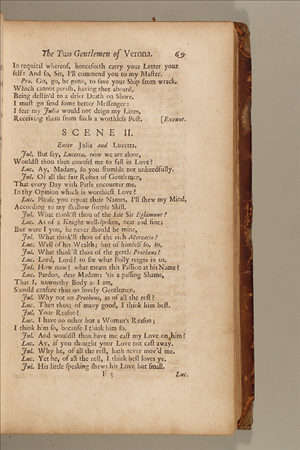 The Two Gentlemen of Verona. 69
In requital whereof, henceforth carry your Letter your
self: And so, Sir, I'll commend you to my Master.
Pro. Go, go, be gone, to save your Ship from wrack,
Which cannot perish, having thee aboard,
Being destin'd to a drier Death on Shore.
I must go send some better Messenger:
I fear my Julia would not deign my Lines,
Receiving them from such a worthless Post. [Exeunt.
SCENE II.
Enter Julia and Lucetta.
Jul. But say, Lucetta, now we are alone,
Wouldst thou then counsel me to fall in Love?
Luc. Ay, Madam, so you stumble not unheedfully.
Jul. Of all the fair Resort of Gentlemen,
That every Day with Parle encounter me,
In thy Opinion which is worthiest Love?
Luc. Please you repeat their Names, I'll shew my Mind,
According to my shallow simple Skill.
Jul. What think'st thou of the fair Sir Eglamour?
Luc. As of a Knight well-spoken, neat and fine;
But were I you, he never should be mine.
Jul. What think'st thou of the rich Mercatio?
Luc. Well of his Wealth; but of himself so, so.
Jul. What think'st thou of the gentle Protheus?
Luc. Lord, Lord! to see what Folly reigns in us.
Jul. How now? what means this Passion at his Name?
Luc. Pardon, dear Madam; 'tis a passing Shame,
That I, unworthy Body as I am,
Should censure thus on lovely Gentlemen.
Jul. Why not on Protheus, as of all the rest?
Luc. Then thus; of many good, I think him best.
Jul. Your Reason?
Luc. I have no other but a Woman's Reason;
I think him so, because I think him so.
Jul. And wouldst thou have me cast my Love on him?
Luc. Ay, if you thought your Love not cast away.
Jul. Why he, of all the rest, hath never mov'd me.
Luc. Yet he, of all the rest, I think best loves ye.
Jul. His little speaking shews his Love but small.
F 3 Luc.